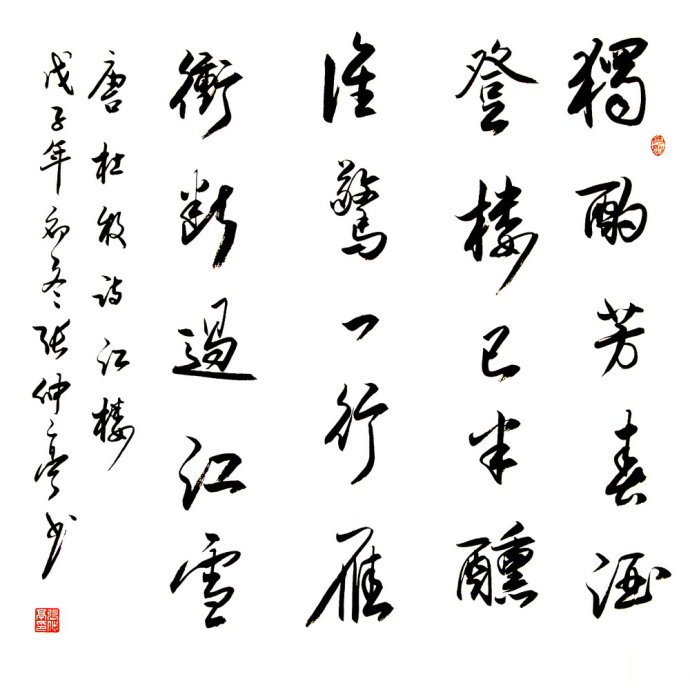 獨酌芳春酒
登樓已半醺
誰驚一行雁
衝斷過江雲
唐杜牧詩江樓
戊子年初冬張仲亭書